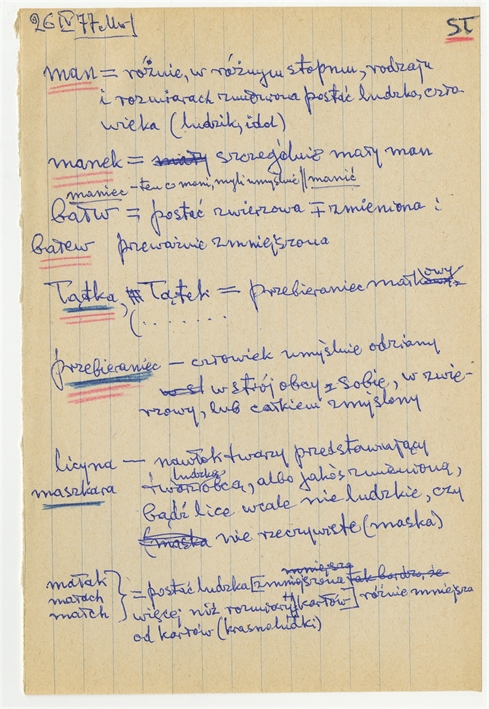 26 IV 77
ST
man = różnie, w różnym stopniu, rodzaju
i rozmiarach zmieniona postać ludzka, czło-
wieka (ludzik, idol)
manek = szczególnie mały man
maniec - ten co mani, myli umyślnie || manić
bałw = postać zwierzowa ∓ zmieniona i
bałew przeważnie zmniejszona
Łątka, Łątek = przebieraniec
(. . . . . . .
przebieraniec — człowiek umyślnie odziany
w strój obcy sobie, w zwie-
rzowy, lub całkiem zmyślony
licyna — nawłok twarzy przedstawiający
ludzką
maszkara twarz obcą, albo jakoś zmienioną,
bądź lice wcale nie ludzkie, czy
nie rzeczywiste (maska)
małak
małach
małch
= postać ludzka [zmniejszona
więcej niż rozmiary kartów] różnie mniejsza
od kartów (krasnoludki)